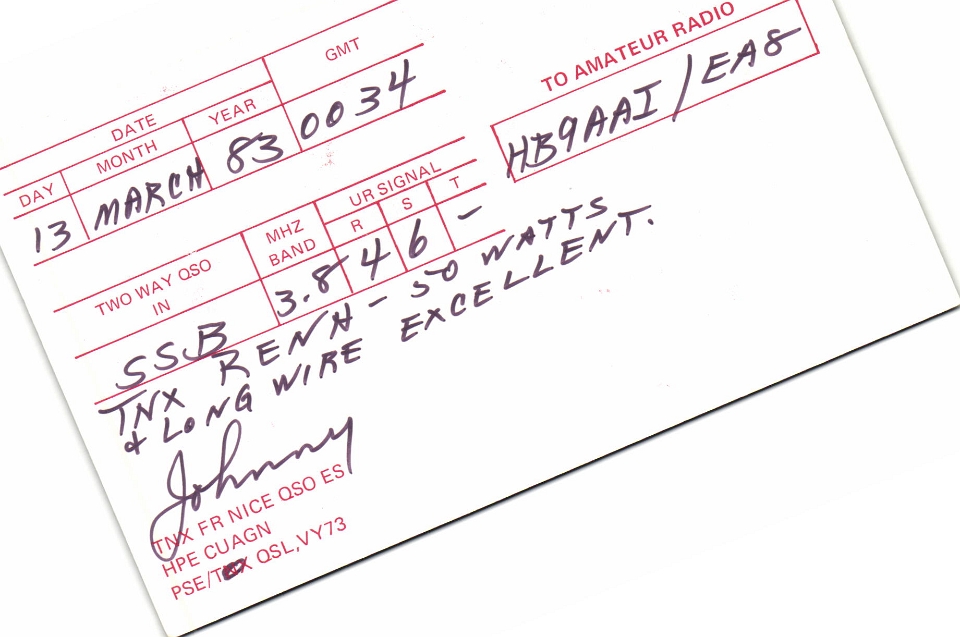 TO AMATEUR RADIO
HB9AAI/EA8
DATE GMT
DAY MONTH YEAR
13 MARCH 83 0034
TWO WAY QSO IN MHZ BAND UR SIGNAL
R S T
SSB 3.8 4 6 -
TNX RENH - 50 WATTS
& LONG WIRE EXCELLENT.
Johnny
TNX FR NICE QSO ES
HPE CUAGN
PSE/ QSL,VY73